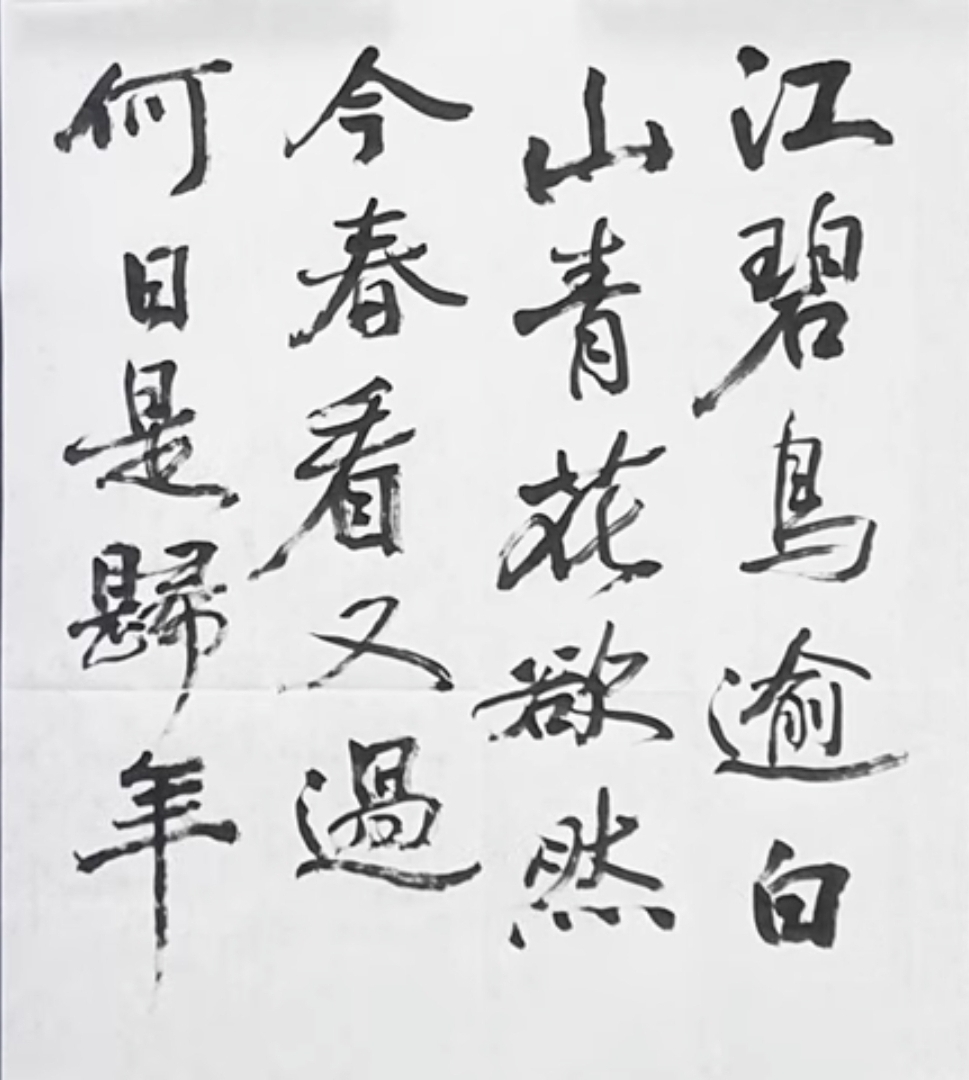 江碧鳥逾白
山青花欲然
今春看又過
何日是歸年